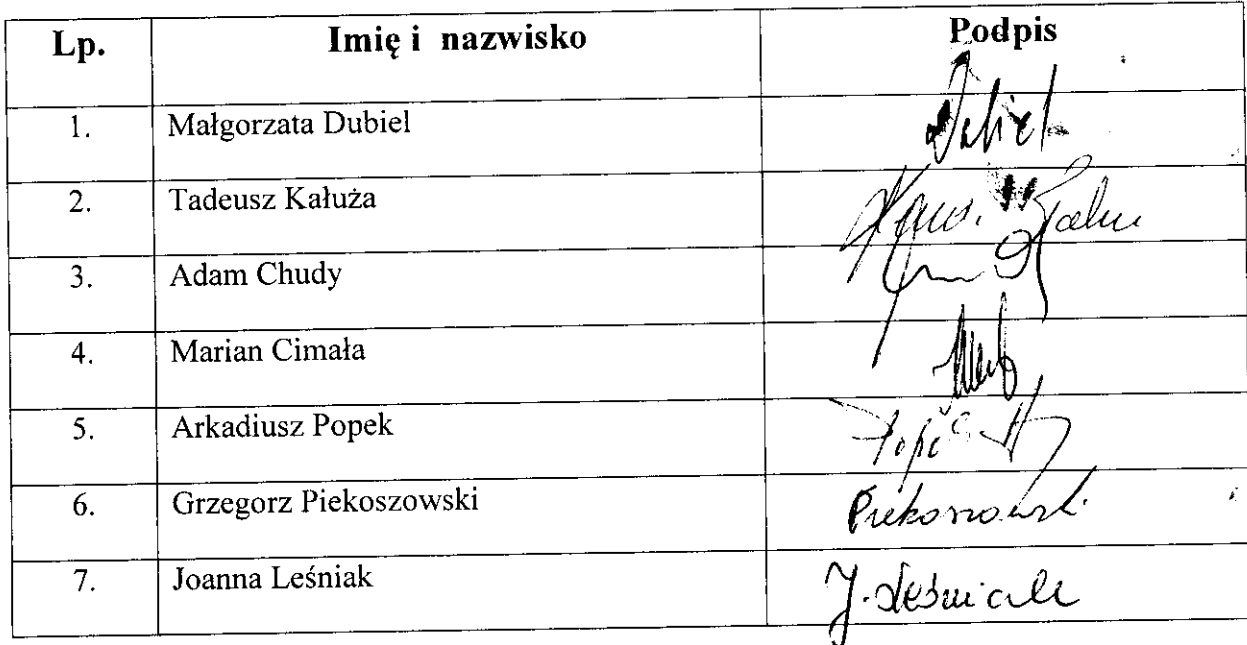 Lp. Imię i nazwisko Podpis
1. Małgorzata Dubiel Dubiel
2. Tadeusz Kałuża
3. Adam Chudy
4. Marian Cimała
5. Arkadiusz Popek
6. Grzegorz Piekoszowski Piekoszowski
7. Joanna Leśniak J. Leśniak